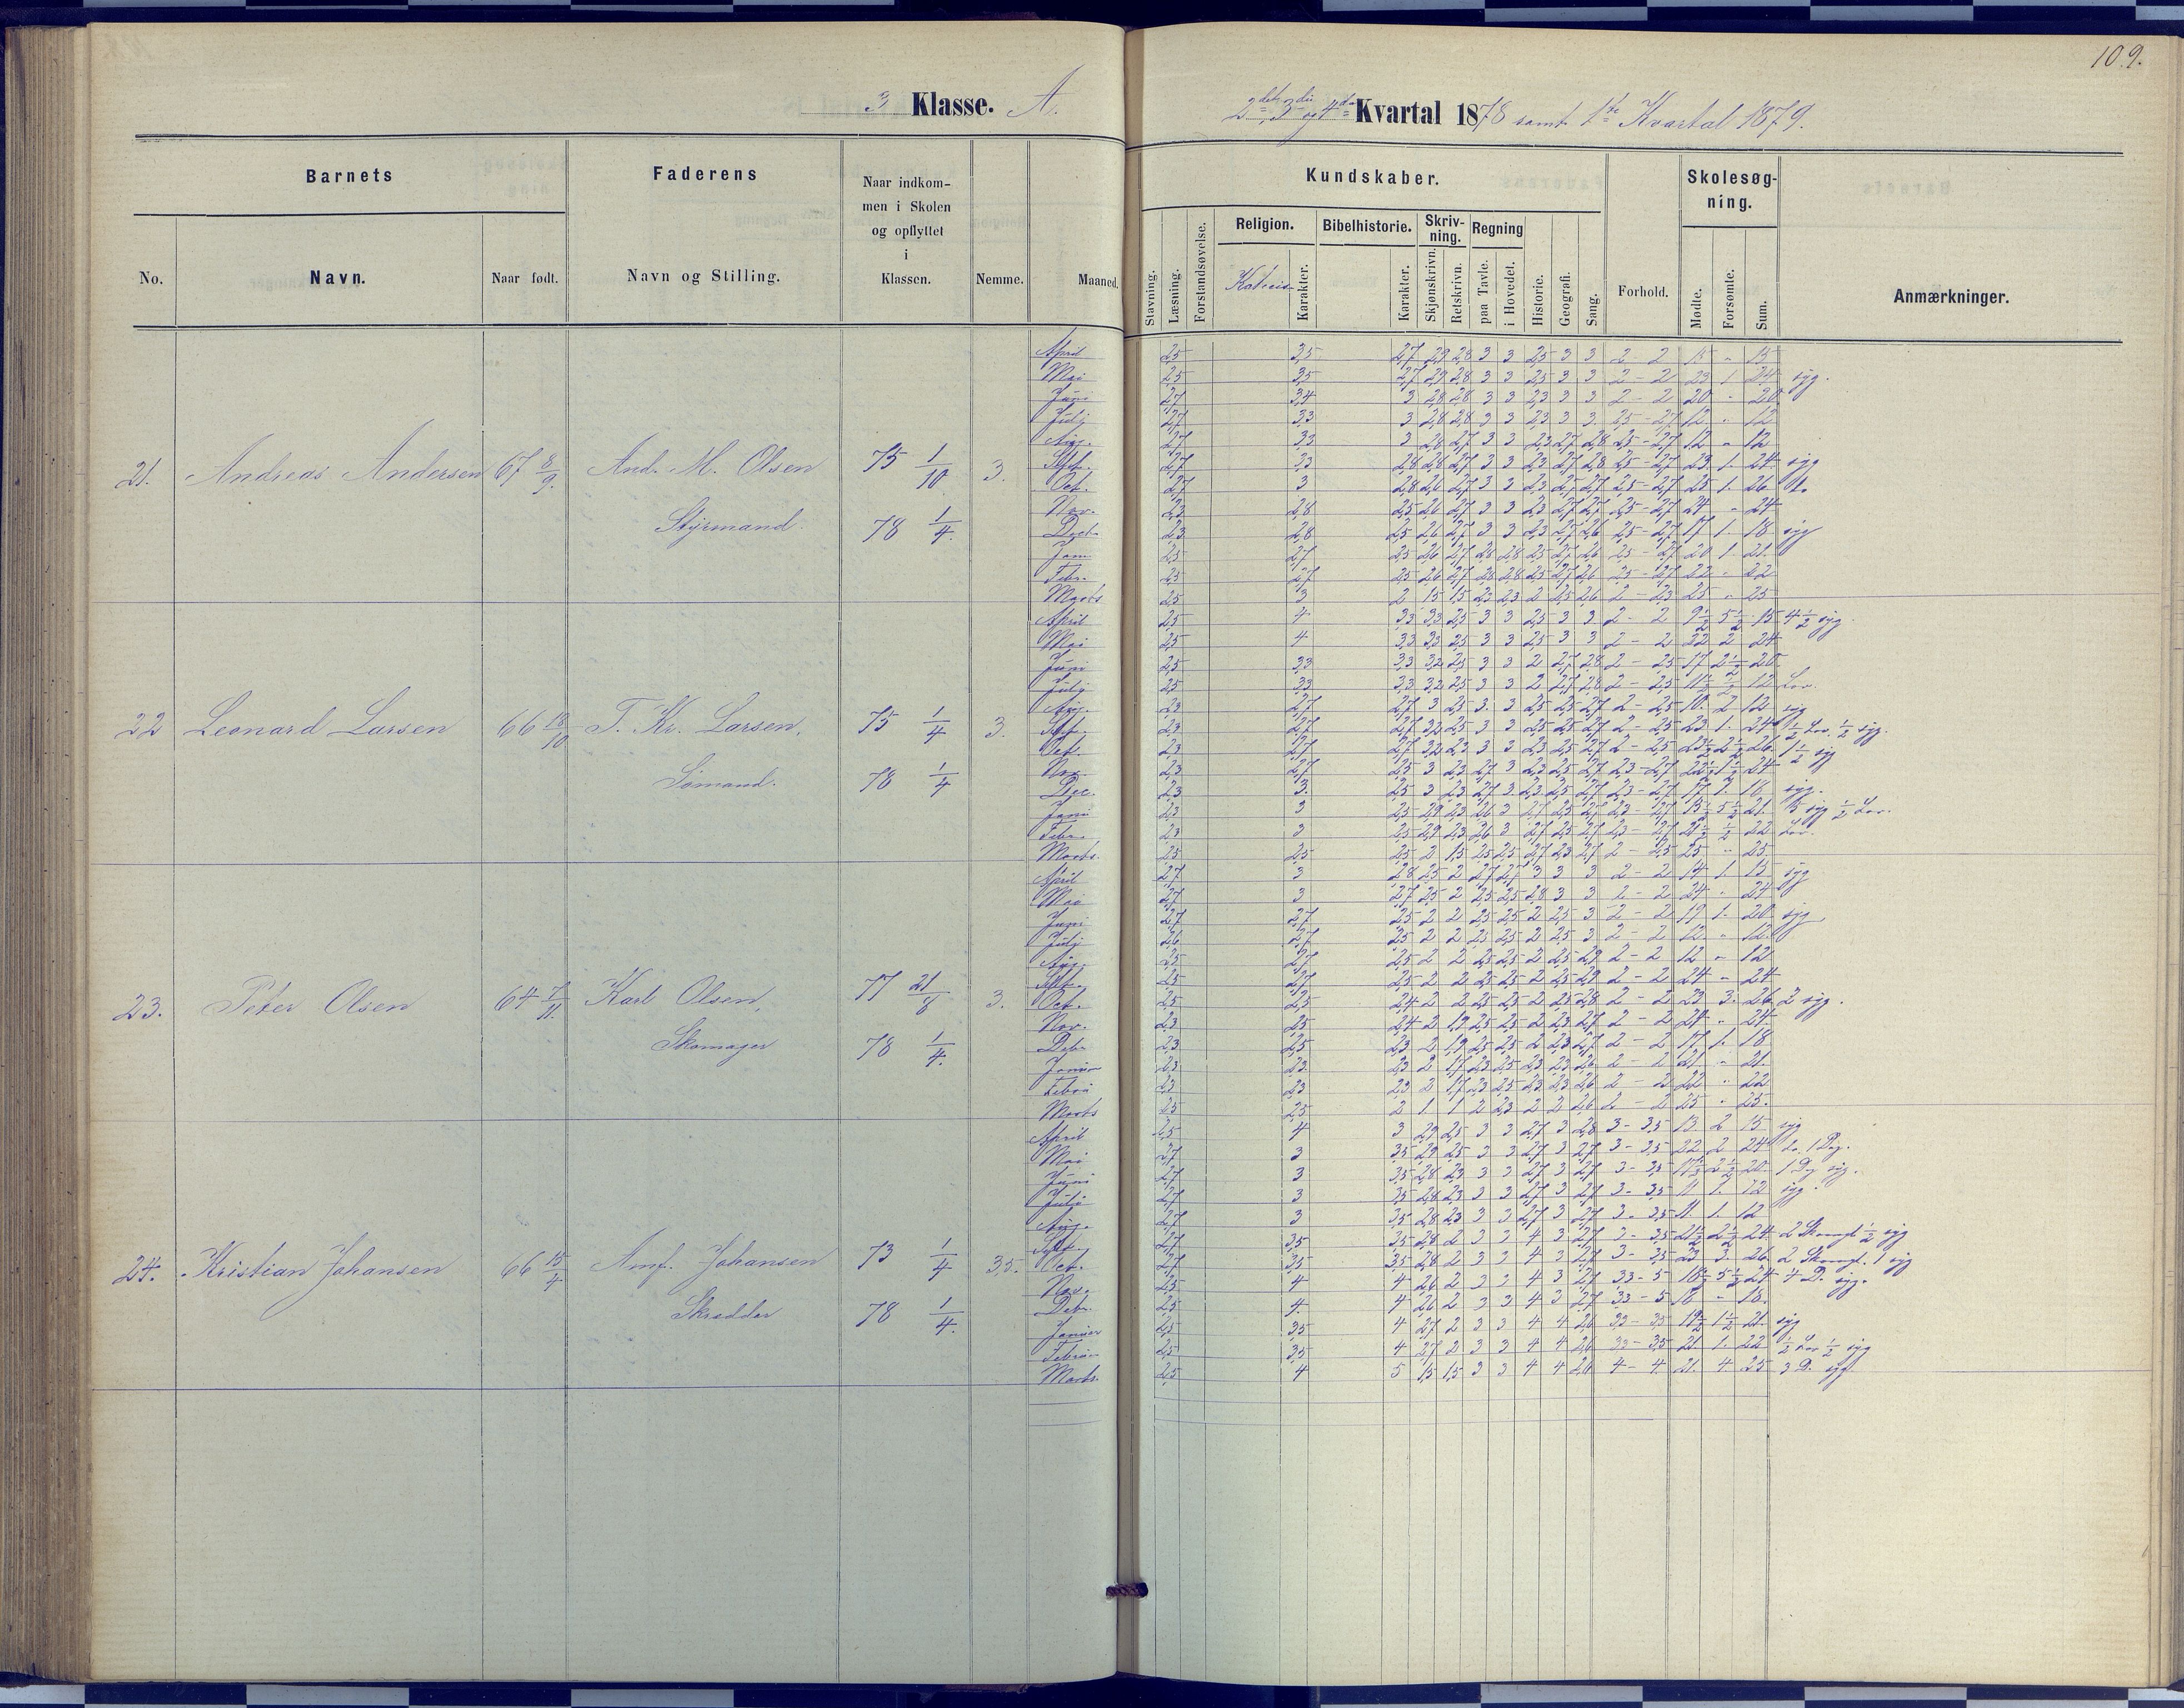 109.
3 Klasse. A.
2det, 3die og 4de Kvartal 1878 samt 1ste Kvartal 1879.
Barnets
Faderens
Naar indkom-
men i Skolen
og opflyttet
i
Klassen.
Nemme.
Maaned.
No.
Navn.
Naar født.
Navn og Stilling.
Kundskaber.
Skolesøg-
ning.
Stavning.
Læsning.
Forstandsøvelse.
Religion.
Karakter.
Bibelhistorie.
Karakter.
Skriv-
ning.
Skjønskrivn.
Retskrivn.
Regning
paa Tavle.
i Hovedet.
Historie.
Geografi.
Sang.
Forhold.
Mødte.
Forsømte.
Sum.
Anmærkninger.
21. Andreas Andersen 67 8/9. And. M. Olsen 75 1/10 3.
Styrmand. 78 1/4.
April 2,5 3,5 2,7 2,9 2,8 3 3 2,5 3 3 2 - 2 15 " 15
Mai 2,5 3,5 2,7 2,9 2,8 3 3 2,5 3 3 2 - 2 23 1 24 syg.
Juni 2,7 3,4 3 2,8 2,8 3 3 2,3 3 3 2 - 2 20 " 20
July 2,7 3,3 3 2,8 2,8 3 3 2,3 3 3 2,5 - 2,7 12 " 12
Aug. 2,7 3,3 3 2,8 2,7 3 3 2,3 2,7 2,8 2,5 - 2,7 12 " 12
Sept. 2,7 3,3 2,8 2,8 2,7 3 3 2,3 2,7 2,8 2,5 - 2,7 23 1. 24 syg
Oct. 2,7 3 2,8 2,6 2,7 3 3 2,3 2,7 2,7 2,5 - 2,7 25 1. 26
Nov. 2,3 2,8 2,5 2,6 2,7 3 3 2,3 2,7 2,7 2,5 - 2,7 24 " 24
Dec. 2,3 2,8 2,5 2,6 2,7 3 3 2,3 2,7 2,6 2,5 - 2,7 17 1. 18 syg
Jan. 2,5 2,7 2,5 2,6 2,7 2,8 2,8 2,5 2,7 2,6 2,5 - 2,7 20 1. 21.
Febr. 2,5 2,7 2,5 2,6 2,7 2,8 2,8 2,5 2,7 2,6 2,5 - 2,7 22 " 22
Marts 2,5 3 2 1,5 1,5 2,3 2,3 2 2,5 2,6 2 - 2,3 25 " 25
22 Leonard Larsen 66 18/10 T. Kr. Larsen, 75 1/4 3.
Sömand. 78 1/4
April 2,5 4 3,3 3,3 2,5 3 3 2,5 3 3 2 - 2 9 1/2 5 1/2 15 4 1/2 syg.
Mai 2,5 4 3,3 3,3 2,5 3 3 2,5 3 3 2 - 2 22 2 24
Juni 2,5 3,3 3,3 3,2 2,5 3 3 2 2,7 2,8 2 - 2,5 17 2 1/2 20
July 2,5 3,3 3,3 3,2 2,5 3 3 2 2,7 2,8 2 - 2,5 11 1/2 1/2 12 Lov.
Aug. 2,3 2,7 2,7 3 2,5 3 3 2,5 2,5 2,7 2 - 2,5 10. 2 12 syg
Sept. 2,3 2,7 2,7 3,2 2,5 3 3 2,5 2,5 2,7 2 - 2,5 23 1. 24 1/2 Lov. 1/2 syg.
Oct. 2,3 2,7 2,7 3,2 2,3 3 3 2,3 2,5 2,7 2 - 2,5 23 1/2 2 1/2 26 1 1/2 syg
Nov. 2,3 2,7 2,5 3 2,3 2,7 3 2,3 2,5 2,7 2,3 - 2,7 22 1/2 1 1/2 24
Dec. 2,3 3. 2,5 3 2,3 2,7 3 2,3 2,5 2,7 2,3 - 2,7 17 1. 18 syg.
Janu 2,3 3 2,5 2,9 2,3 2,6 3 2,7 2,5 2,7 2,3 - 2,7 15 1/2 5 1/2 21. 5 syg 1/2 Lov.
Febr. 2,3 3 2,5 2,9 2,3 2,6 3 2,7 2,5 2,7 2,3 - 2,7 21 1/2 1/2 22 Lov.
Marts. 2,5 2,5 2,5 2 1,5 2,5 2,5 2,7 2,3 2,7 2 - 2,5 25 " 25
23. Peter Olsen 64 7/11. Karl Olsen, 77 21/8 3.
Skomager 78 1/4.
April 2,7 3 2,8 2,5 2 2,7 2,7 3 3 3 2 - 2 14 1. 15 syg
Mai 2,7 3 2,7 2,5 2 2,5 2,5 2,8 3 3 2 - 2 24 " 24
Juni 2,7 2,7 2,5 2 2 2,5 2,5 2 2,5 3 2 - 2 19 1. 20 syg.
July 2,6 2,7 2,5 2 2 2,5 2,5 2 2,5 3 2 - 2 12. " 12.
Aug. 2,5 2,7 2,5 2 2 2,5 2,5 2 2,5 2,9 2 - 2 12 " 12
Sept. 2,5 2,7 2,5 2 2 2,5 2,5 2 2,5 2,9 2 - 2 24 " 24
Oct. 2,5 2,5 2,4 2 2 2,5 2,5 2 2,5 2,8 2 - 2 23 3. 26 2 syg.
Nov. 2,3 2,5 2,4 2 1,9 2,5 2,5 2 2,3 2,7 2 - 2 24 " 24
Debr. 2,3 2,5 2,3 2 1,9 2,5 2,5 2 2,3 2,7 2 - 2 17 1. 18
Januar 2,3 2,3 2,3 2 1,7 2,3 2,5 2,3 2,3 2,6 2 - 2 21 " 21.
Febru 2,3 2,3 2,3 2 1,7 2,3 2,5 2,3 2,3 2,6 2 - 2 22 " 22
Marts 2,5 2,5 2 1. 1 2 2,3 2 2 2,6 2 - 2 25 " 25.
24. Kristian Johansen 66 15/4 Amf. Johansen 73 1/4 3,5.
Skrædder 78 1/4.
April 2,5 4 3 2,9 2,5 3 3 2,7 3 2,8 3 - 3,5 13 2 15 syg
Mai 2,7 3 3,5 2,9 2,5 3 3 2,7 3 2,7 3 - 3,5 22 2 24 1 Dag.
Juni 2,7 3 3,5 2,8 2,3 3 3 2,7 3 2,7 3 - 3,5 17 1/2 2 1/2 20 1 Dag syg.
July 2,7 3 3,5 2,8 2,3 3 3 2,7 3 2,7 3 - 3,5 11 1. 12 syg.
Aug. 2,7 3 3,5 2,8 2,3 3 3 2,7 3 2,7 3 - 3,5 11. 1. 12
Sept. 2,7 3,5 3,5 2,8 2 3 3 4 3 2,7 3 - 3,5 21 1/2 2 1/2 24 2 1/2 syg
Oct. 2,7 3,5 3,5 2,8 2 3 3 4 3 2,7 3 - 3,5 23 3. 26 2 1 syg
Nov. 2,5 4 4 2,6 2 3 3 4 3 2,7 3,3 - 5 18 1/2 5 1/2 24 4 D. syg.
Debr. 2,5 4. 4 2,6 2 3 3 4 3 2,7 3,3 - 5 18 " 18.
Januar 2,5 3,5 4 2,7 2 3 3 4 4 2,6 3,3 - 3,5 19 1/2 1 1/2 21. syg
Februar 2,5 3,5 4 2,7 2 3 3 4 4 2,6 3,3 - 3,5 21. 1. 22 1/2 Lov 1/2 syg
Marts. 2,5 4 5 1,5 1,5 3 3 4 4 2,6 4 - 4. 21. 4. 25 3 D. syg.